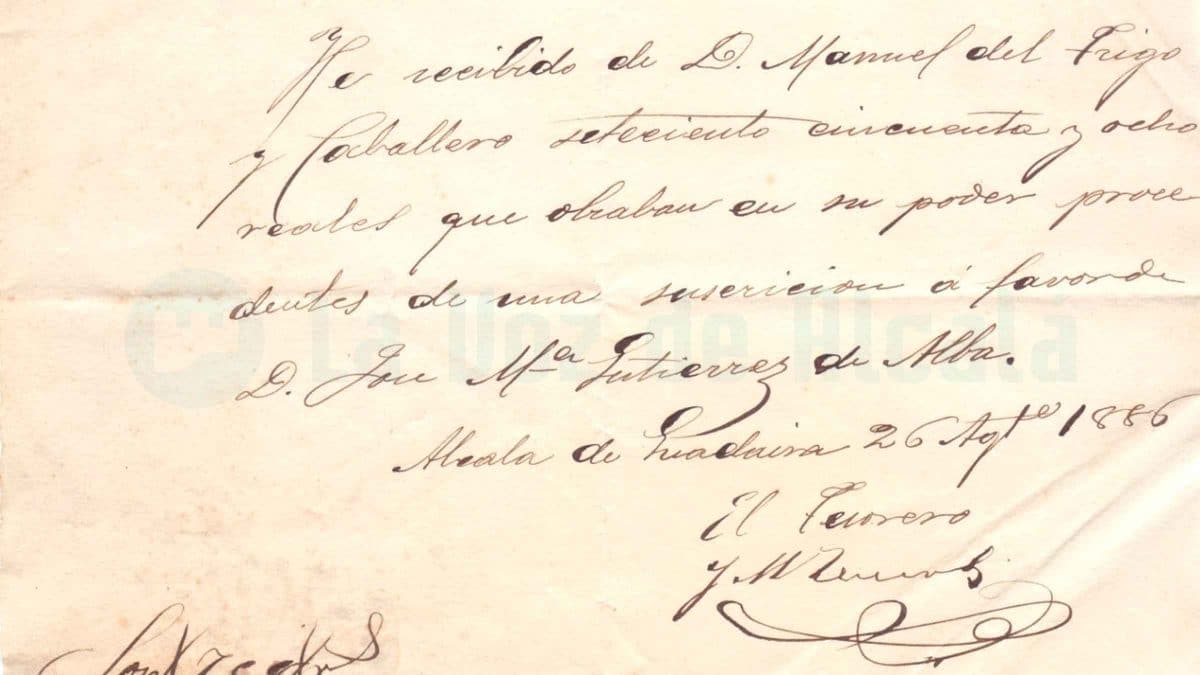 He recibido de D. Manuel del Trigo
y Caballero seteciento cincuenta y ocho
reales que obraban en su poder proce
dentes de una suscricion á favor de
D. Jose Mª Gutierrez de Alba.
La Voz de Alcalá
Alcala de Guadaira 26 Agto 1886
El Tesorero
J M